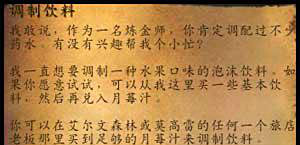 调制饮料
我敢说，作为一名炼金师，你肯定调配过不少
药水。有没有兴趣帮我个小忙？
我一直想要调制一种水果口味的泡沫饮料。如
果你愿意试试，可以从我这里买一些基本饮
料，然后再兑入月莓汁。
你可以在艾尔文森林或莫高雷的任何一个旅店
老板那里买到足够的月莓汁来调制饮料。